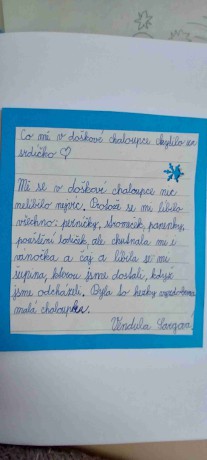 Co mě v doškové chaloupce chytilo za
srdíčko ♡
Mi se v doškové chaloupce nic
nelíbilo nejvíc. Protože se mi líbilo
všechno: perníčky, stromeček, panenky,
pouštění lodiček, ale chutnala mi i
vánočka a čaj a líbila se mi
šupina, kterou jsme dostali, když
jsme odcházeli. Byla to hezky vyzdobená
malá chaloupka.
Vendula